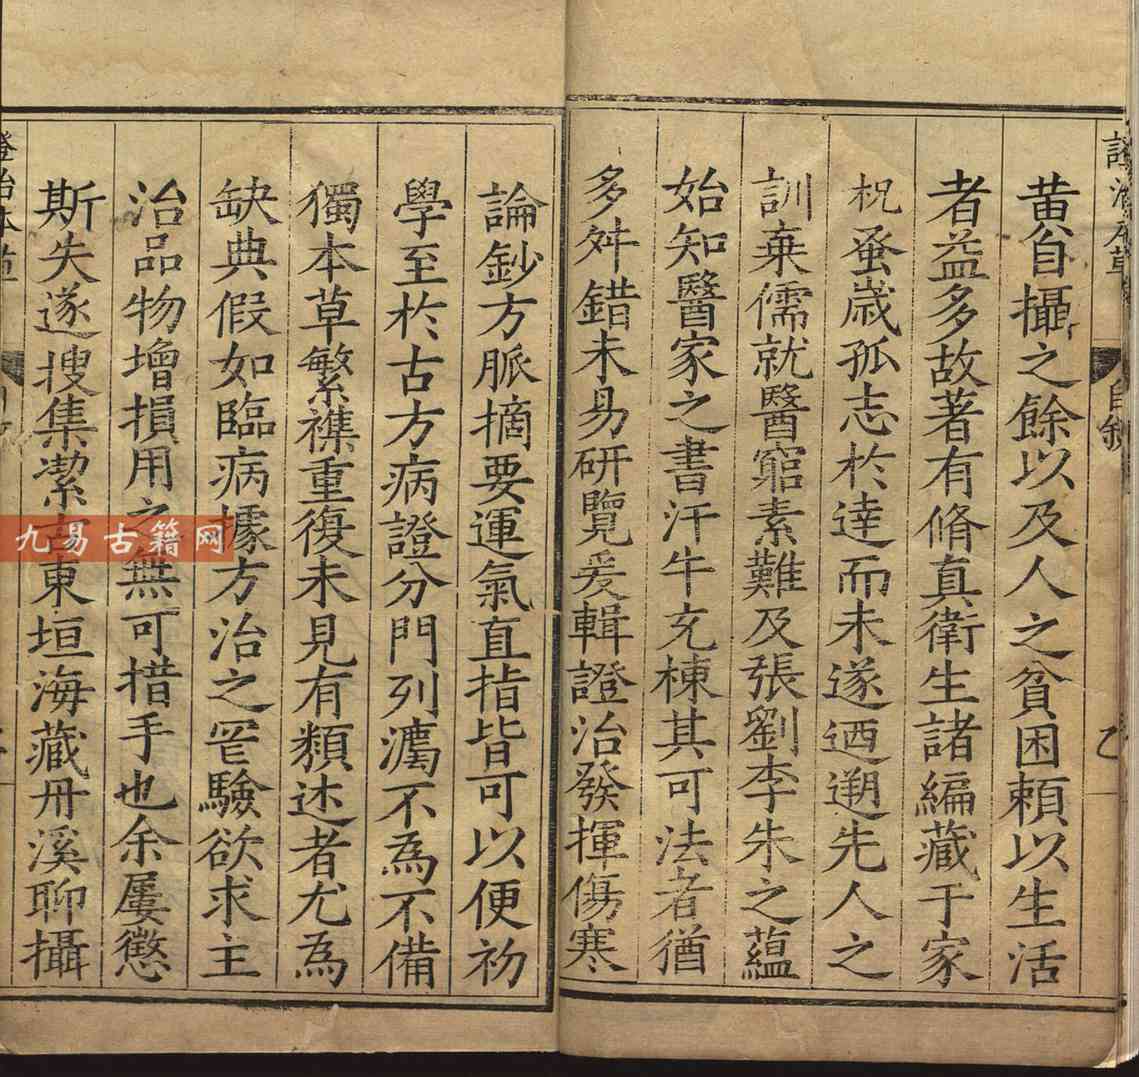 黄自攝之餘以及人之貧困頼以生活
者益多故著有脩真衛生諸編藏于家
柷蚤歲孤志於達而未遂迺遡先人之
訓棄儒就醫窮素難及張劉李朱之藴
始知醫家之書汗牛充棟其可法者猶
多舛錯未易研覽爰輯證治發揮傷寒
論鈔方脈摘要運氣直指皆可以便初
學至於古方病證分門列㵾不為不備
獨本草繁襍重復未見有類述者尤為
缺典假如臨病據方治之罕驗欲求主
治品物增損用之無可措手也余屢懲
斯失遂搜集潔古東垣海藏丹溪聊攝
自敘
證治本草
九易古籍网